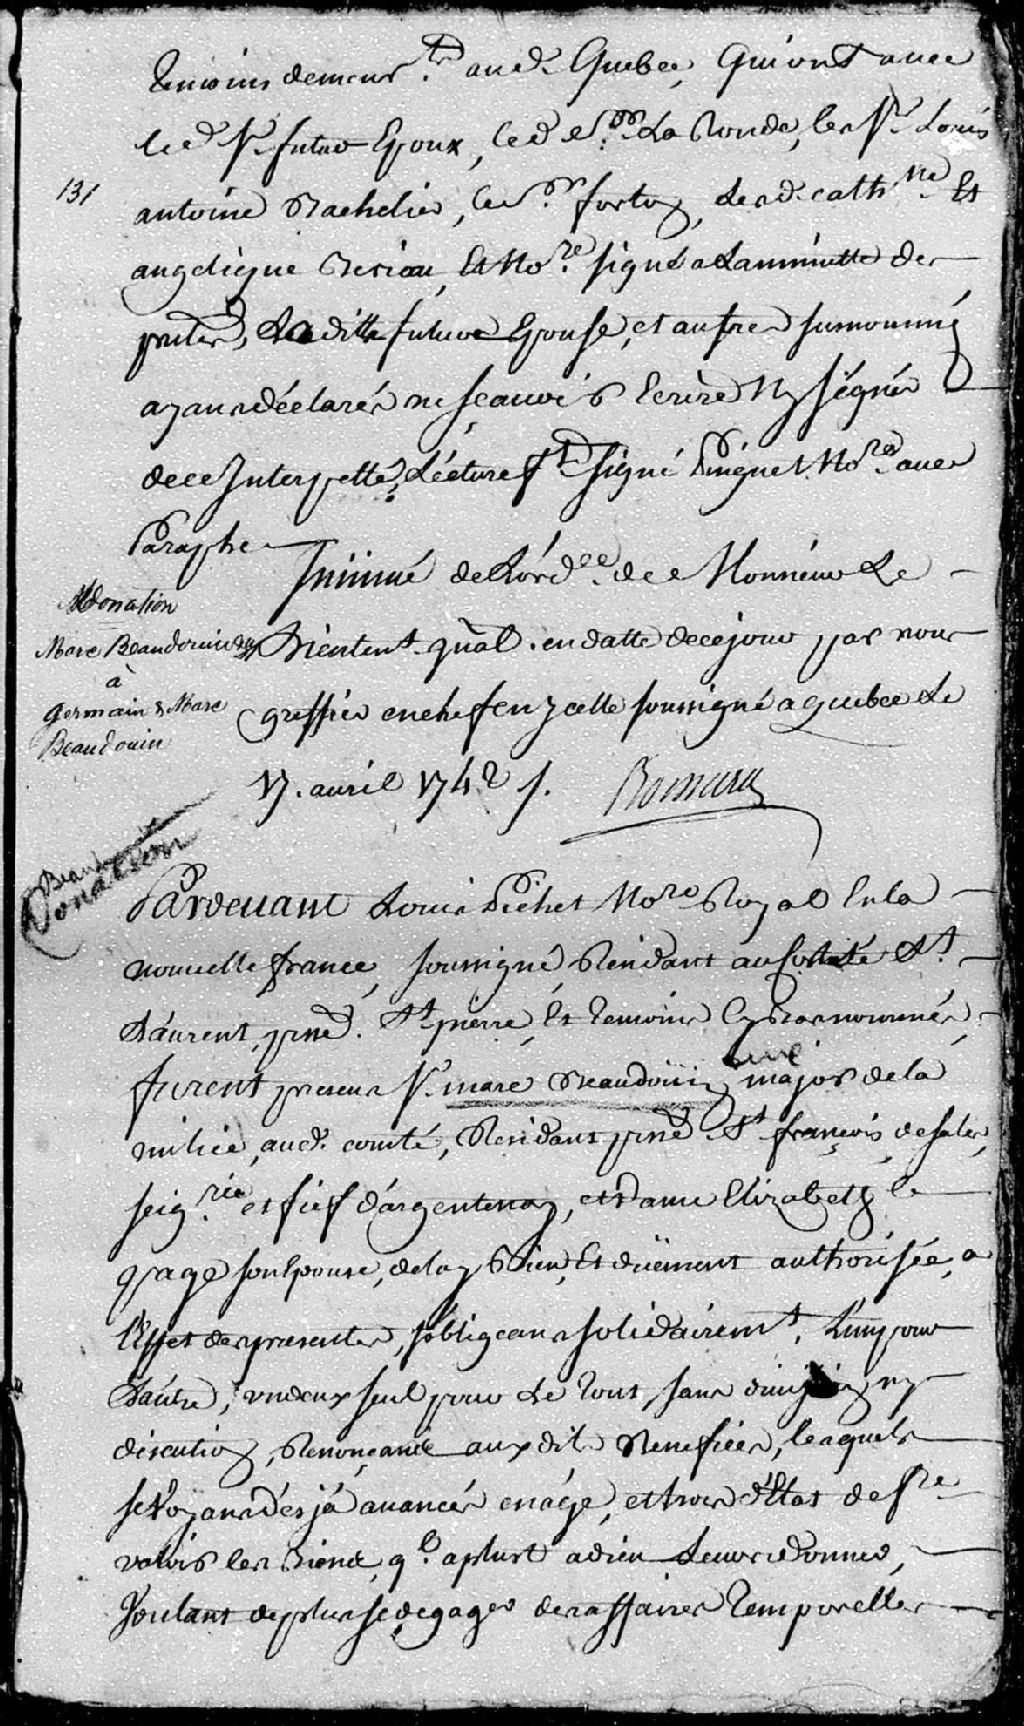 temoins demeur.ts aud. Quebec, Qui ont avec
led. Sr. futur Epoux, led. Sr. La Ronde, les Srs Louis
131
antoine Bachelier, le Sr fortin, lesd. cath.ne Et
angelique Beriau, Et No.re signé a La minutte des
pntes, La ditte future Epouse, et autres surnommés
ayans déclarés ne sçavoir Ecrire Ny signer
de ce Interpellé, Lécture fte signé Pinguet No.re avec
Paraphe
Insinué de Lórd.ce de Monsieur Le
Lieutent. gñal. en datte de ce jour par nous
greffier en chef en ycelle soussigné a quebec Le
17. avril 1742 /.
Donation
Marc Beaudouin
à
Germain & Marc
Beaudouin
Donation
Pardevant Louis Pichet No.re Royal En la
nouvelle france, soussigné, Résidant au Comté St.
Laurent, psse. St pierre, Et temoins Cy bas nommés,
furent presens Sr. marc Beaudouin, major de la
milice, aud. comté, Residant psse St françois de sales,
seig.rie et fief d'argentenay, et dame Elizabeth le
page son Epouse, de luy bien, Et düement authorisée, a
l'Effet des presentes, s'obligeans solidairemt. L'un pour
L'autre, un deux seul pour Le tout, sans division, ny
discution, Renonçante auxdits Benefices, lesquels
se Voyans désjá avancés en âge, et hors d'Etat de fre
valoir les Biens, ql. a plust a dieu Leurs donner,
Voulant de plus se degager des affaires temporelles